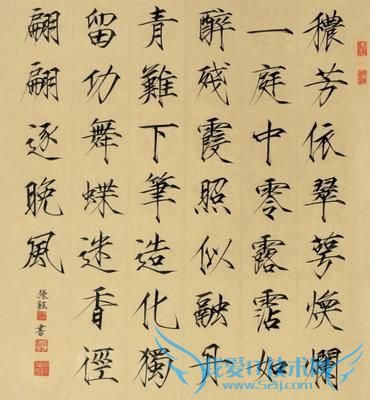 穠芳依翠萼煥爛
一庭中零露霑如
醉殘霞照似融丹
青難下筆造化獨
留功舞蝶迷香徑
翩翩逐晚風
張鈺書
我爱IT技术网